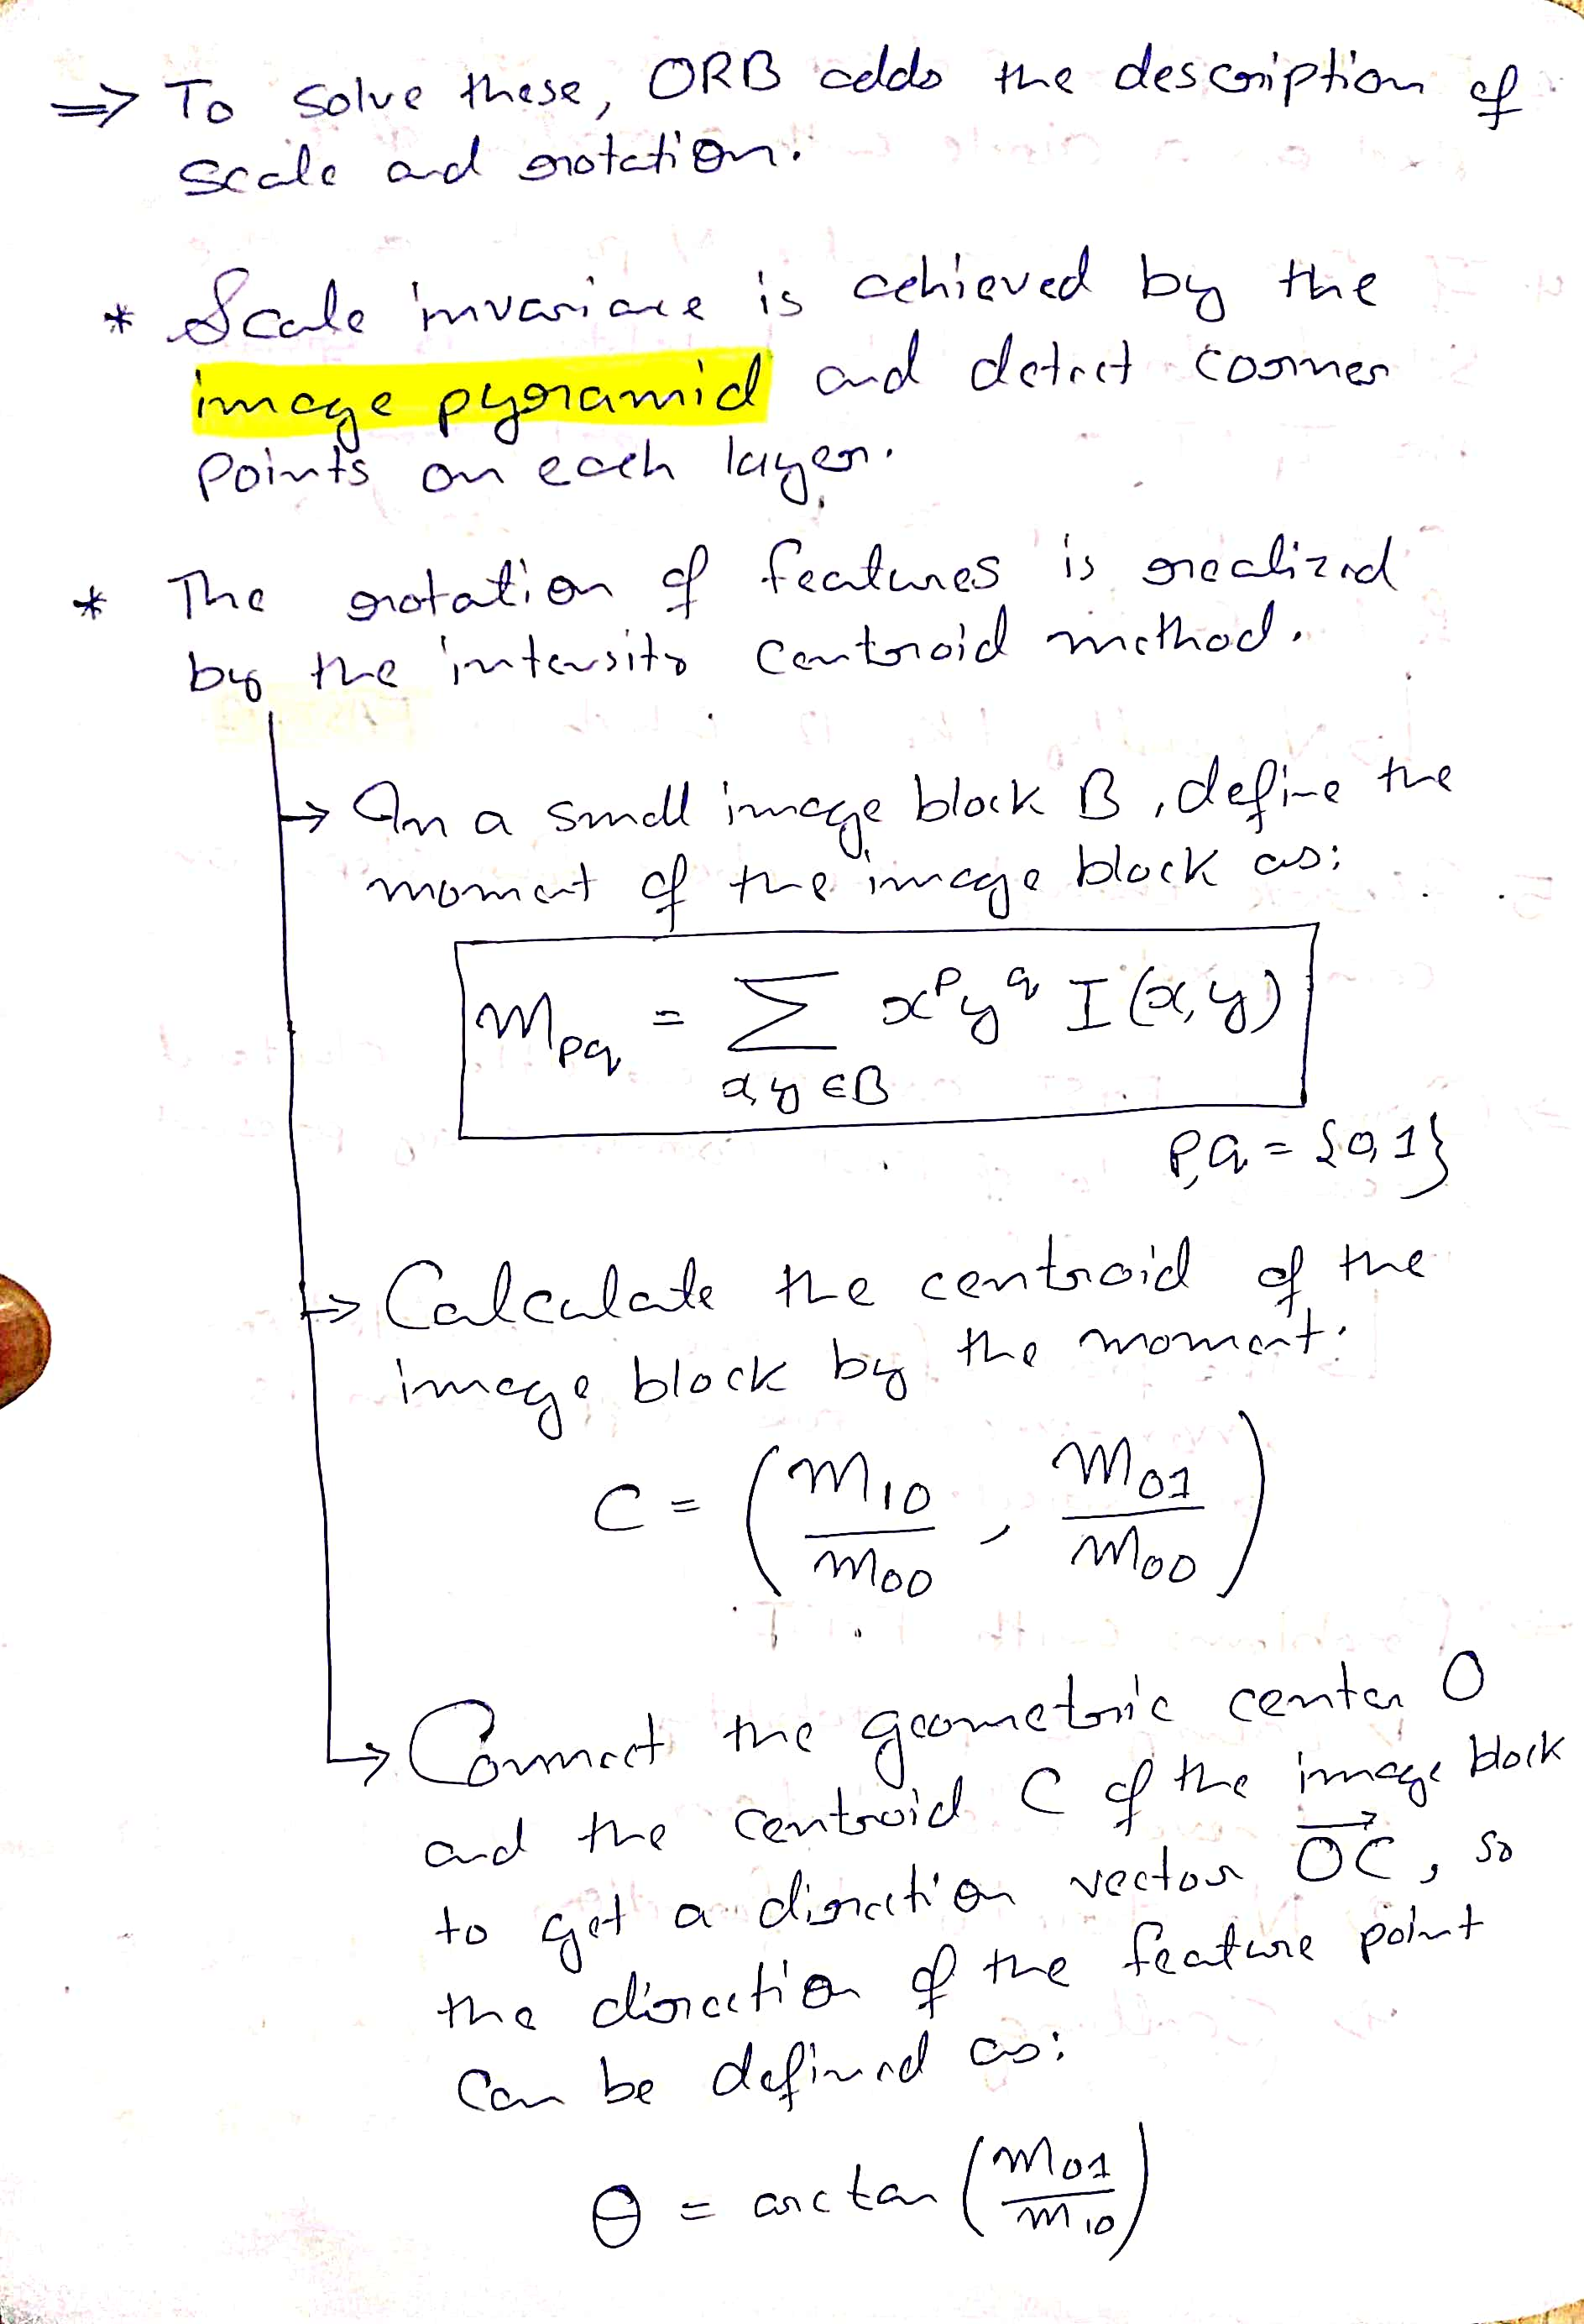 ⇒ To solve these, ORB adds the description of
scale and rotation.
* Scale invariance is achieved by the
image pyramid and detect corner
points on each layer.
* The rotation of features is realized
by the intensity centroid method.
→ In a small image block B, define the
moment of the image block as:
m_pq = Σ x^p y^q I(x,y)
x,y ∈ B
p,q = {0,1}
→ Calculate the centroid of the
image block by the moment:
C = (m10/m00, m01/m00)
→ Connect the geometric center O
and the centroid C of the image block
to get a direction vector \overrightarrow{OC}, so
the direction of the feature point
can be defined as:
θ = arctan (m01/m10)